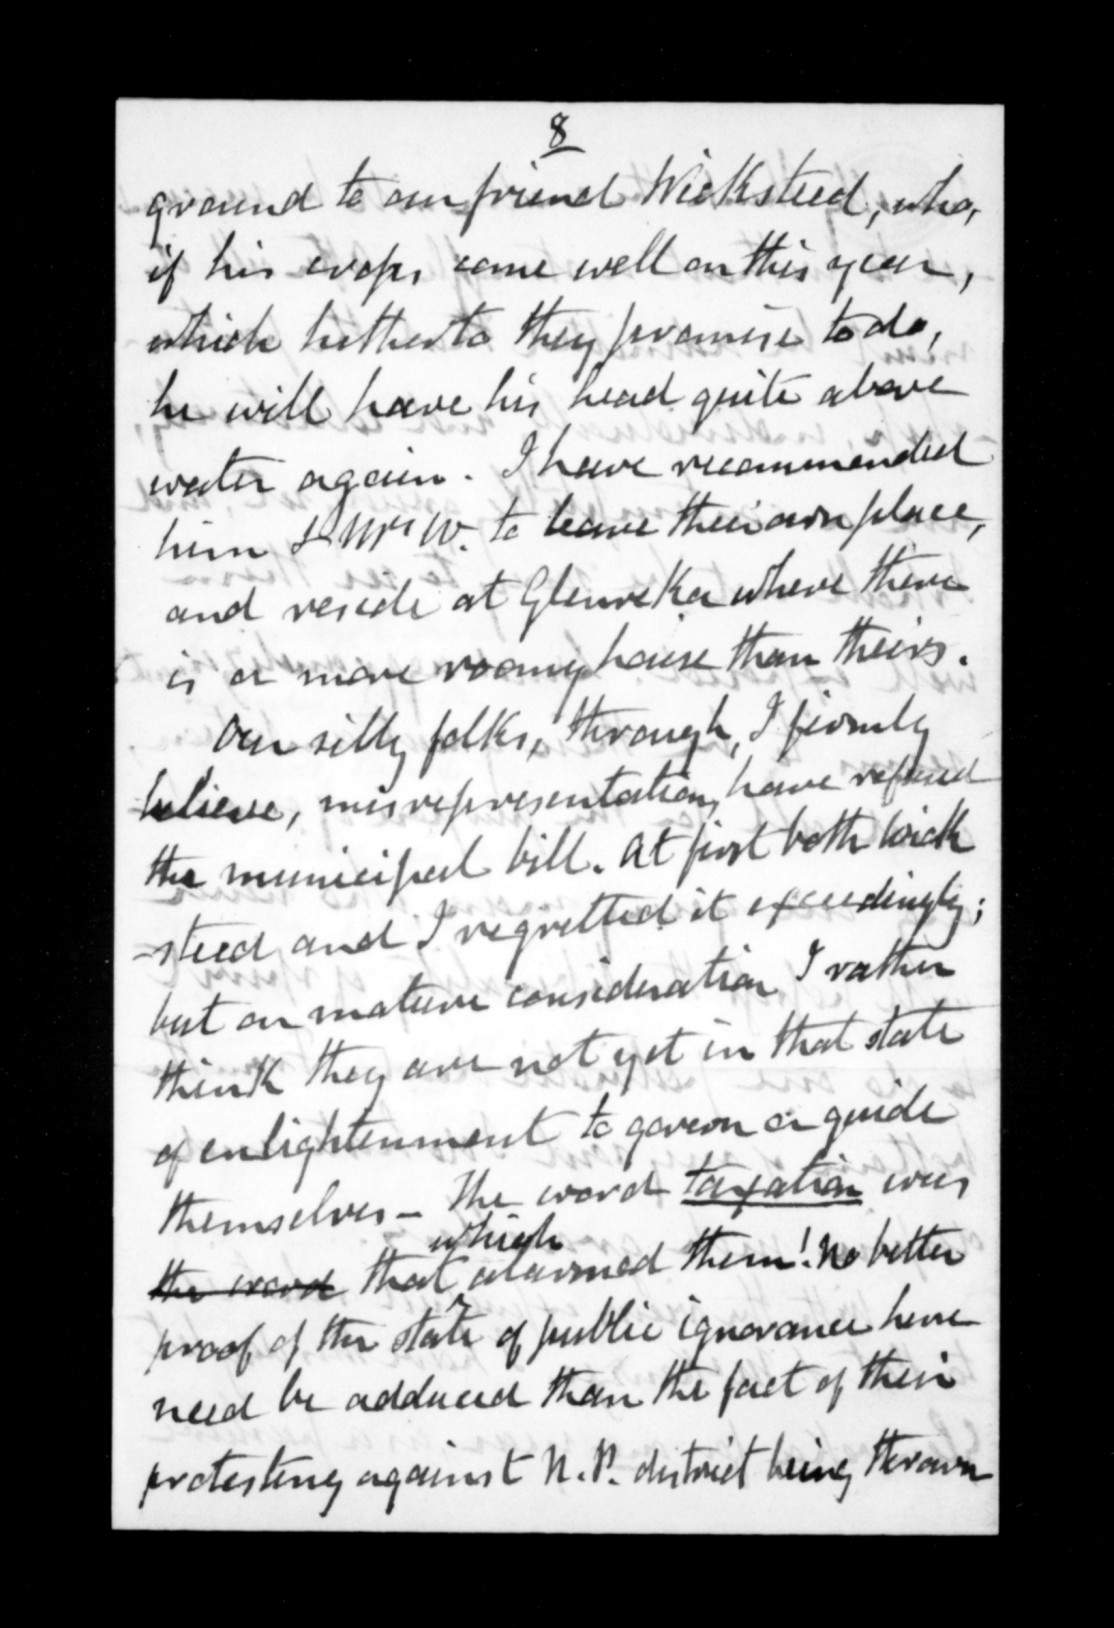 8
ground to our friend Wicksteed, who,
if his crops come well on this year,
which hitherto they promise to do,
he will have his head quite above
water again. I have recommended
him & Mrs W. to leave their own place,
and reside at Glenveka where there
is a more roomy house than theirs.
Our silly folks, through, I firmly
believe, misrepresentation, have refused
the municipal bill. At first both Wick
-steed and I regretted it exceedingly;
but on mature consideration I rather
think they are not yet in that state
of enlightenment to govern or guide
themselves - The word taxation was
which
the word that alarmed them! No better
proof of the state of public ignorance here
need be adduced than the fact of their
protesting against N.P. district being thrown